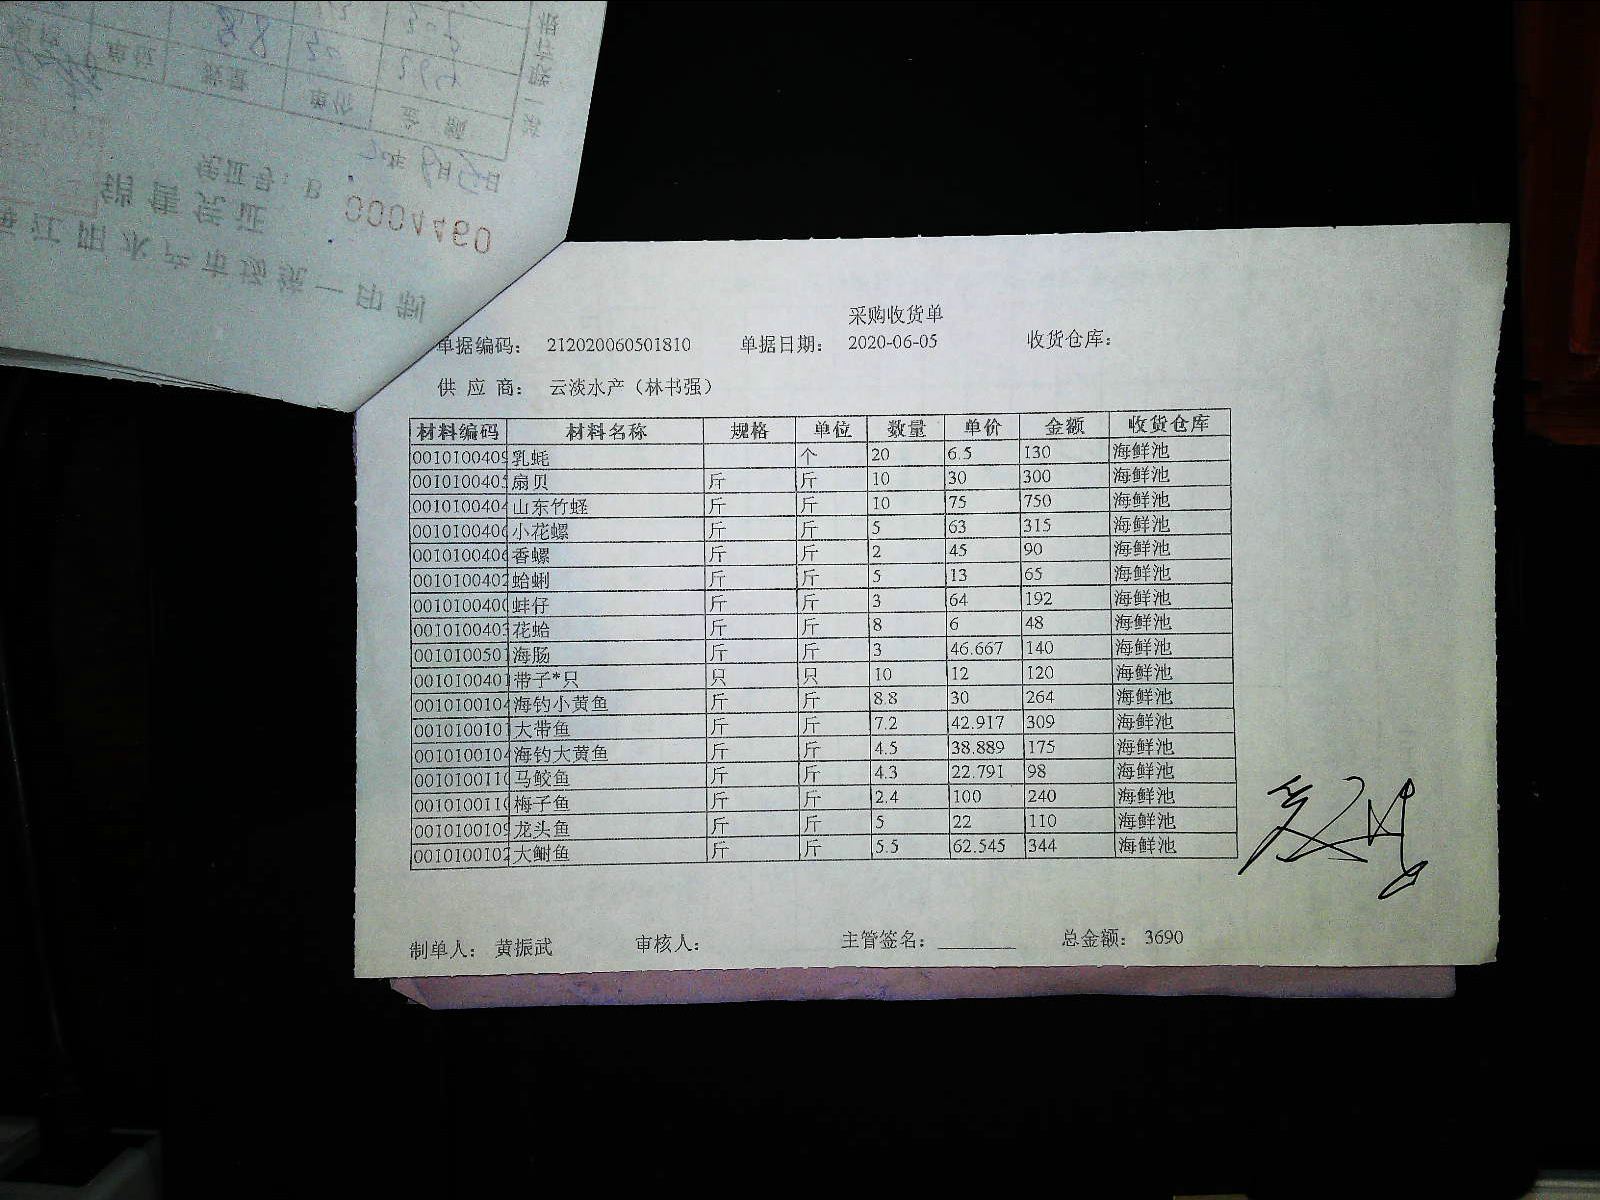 第一联存根
数量 单价 金额
8.8 30 264
年6月5日
凭证号：B 0004460
销售凭证
江阳水产市场统一印制
采购收货单
单据编码： 212020060501810 单据日期： 2020-06-05 收货仓库：
供 应 商： 云淡水产（林书强）
材料编码 材料名称 规格 单位 数量 单价 金额 收货仓库
0010100409 乳蚝 个 20 6.5 130 海鲜池
0010100405 扇贝 斤 斤 10 30 300 海鲜池
0010100404 山东竹蛏 斤 斤 10 75 750 海鲜池
0010100406 小花螺 斤 斤 5 63 315 海鲜池
0010100406 香螺 斤 斤 2 45 90 海鲜池
0010100402 蛤蜊 斤 斤 5 13 65 海鲜池
0010100400 蚌仔 斤 斤 3 64 192 海鲜池
0010100403 花蛤 斤 斤 8 6 48 海鲜池
0010100501 海肠 斤 斤 3 46.667 140 海鲜池
0010100401 带子*只 只 只 10 12 120 海鲜池
0010100104 海钓小黄鱼 斤 斤 8.8 30 264 海鲜池
0010100101 大带鱼 斤 斤 7.2 42.917 309 海鲜池
0010100104 海钓大黄鱼 斤 斤 4.5 38.889 175 海鲜池
0010100110 马鲛鱼 斤 斤 4.3 22.791 98 海鲜池
0010100110 梅子鱼 斤 斤 2.4 100 240 海鲜池
0010100109 龙头鱼 斤 斤 5 22 110 海鲜池
0010100102 大鲥鱼 斤 斤 5.5 62.545 344 海鲜池
制单人： 黄振武 审核人： 主管签名： ________ 总金额： 3690